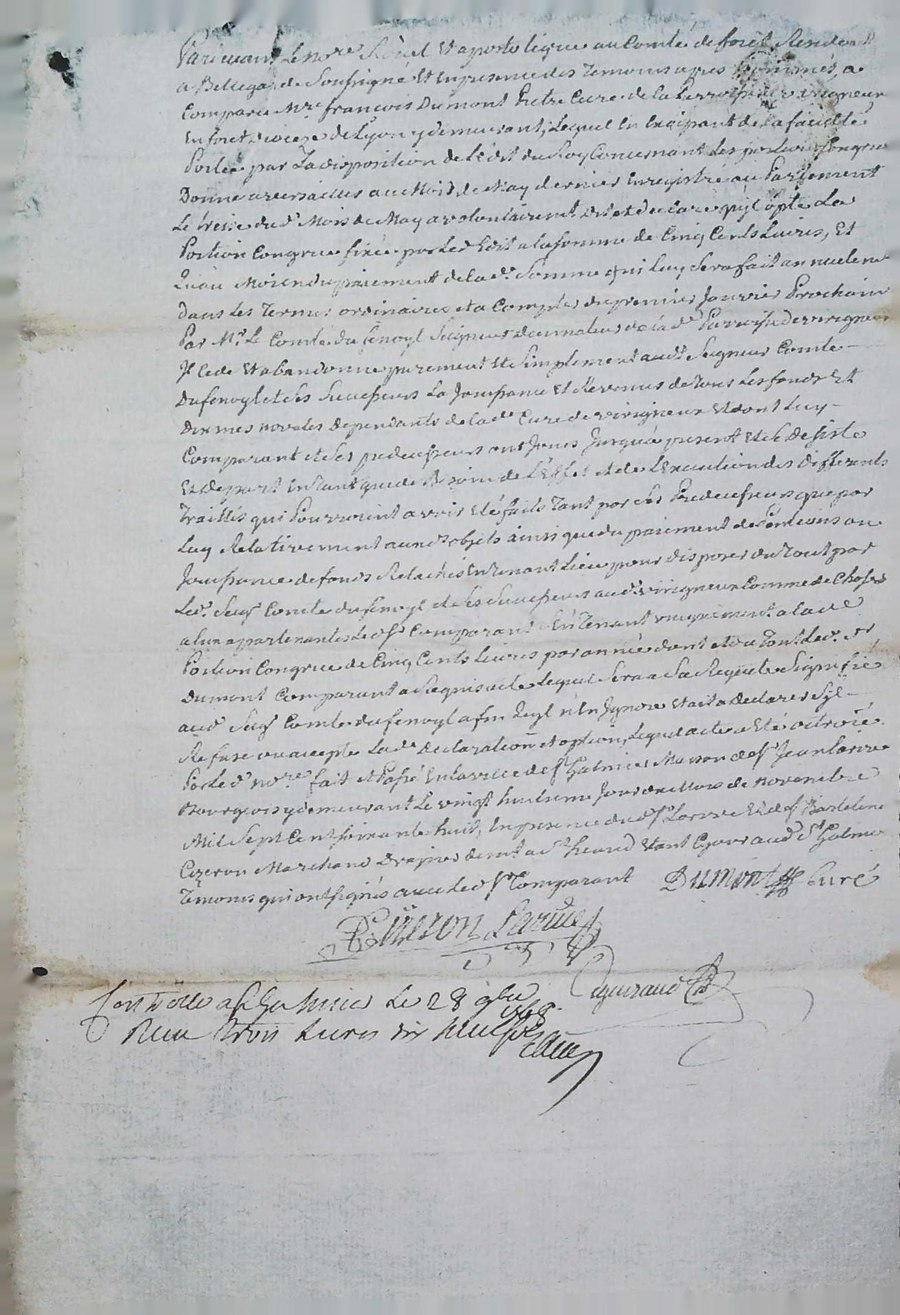 Pardevant le no.re Royal et apostolique au Comté de forest Resident
a Bellegarde Soussigné et en presence des Temoins apres Nommés, a
Comparu M.re françois Dumont Pretre Curé de la Parroisse de virigneux
En foret Diocese de Lyon y demeurant, Lequel En de la faculté
Portée par La disposition de L'Edit du Roy Concernant Les portions Congrues
Donné a versailles au Mois de May dernier Enregistré au Parlement
Le treize dud. Mois de May a volontairement dit et declaré qu'il opte La
Portion Congrue fixée par Led. Edit a la somme de Cinq Cents Livres, Et
qu'au Moien du paiement de lad.e Somme qui Luy sera fait annuellement
dans Les Termes ordinaires et a Compter du premier Janvier Prochain
Par M.r Le Comte du fenoyl Seigneur de la d.e Parroisse de virigneux
Il Cede et abandonne purement et simplement aud.t Seigneur Comte
Dufenoyl et ses successeurs La Jouissance Et Revenus de Tous Les fonds Et
Dixmes novales dependants de la d.e Cure de virigneux Et dont Luy
Comparant et ses predecesseurs ont Joui Jusqu'a present Et se desiste
Et depart En tant que de Besoin de L'Effet et de L'Execution des differents
Traittés qui Pourroient avoir Eté faits Tant par ses Predecesseurs que par
Luy Relativement auxd.s objets ainsi que du paiement de ou
Jouissance de fonds Relachés En Tenant Lieu pour disposer du Tout par
Led. Seig.r Comte du fenoyl et ses successeurs aud.t virigneux Comme de Choses
a Eux appartenantes Led. s.r Comparant s'En Tenant uniquement a lad.e
Portion Congrue de Cinq Cents Livres par année dont et du Tout Led. s.r
Dumont Comparant a Requis acte Lequel sera a sa Requete Signifié
aud. Seig.r Comte du fenoyl afin qu'il n'En Ignore et ait a declarer s'il
Refuse ou accepte Lad.e declaration et option, Lequel acte a Eté octroié
Par Led. no.re fait et Passé En la ville de s.t Galmier Maison de s.r Jean Larive
Bourgeois y demeurant Le vingt huitieme Jour du Mois de Novembre
Mil Sept Cent soixante huit, En presence dud. s.r Larive Et de s.r Bartelemi
Cizeron Marchand Drapier demt a Etant Ce jour aud. s.t Galmier
Temoins qui ont signés avec Led. s.r Comparant Dumont Curé
B. Cizeron Larive
Eyguraud
Controllé a s.t Galmier Le 28 9bre 1768
Reçu Trois Livres dix huit sols